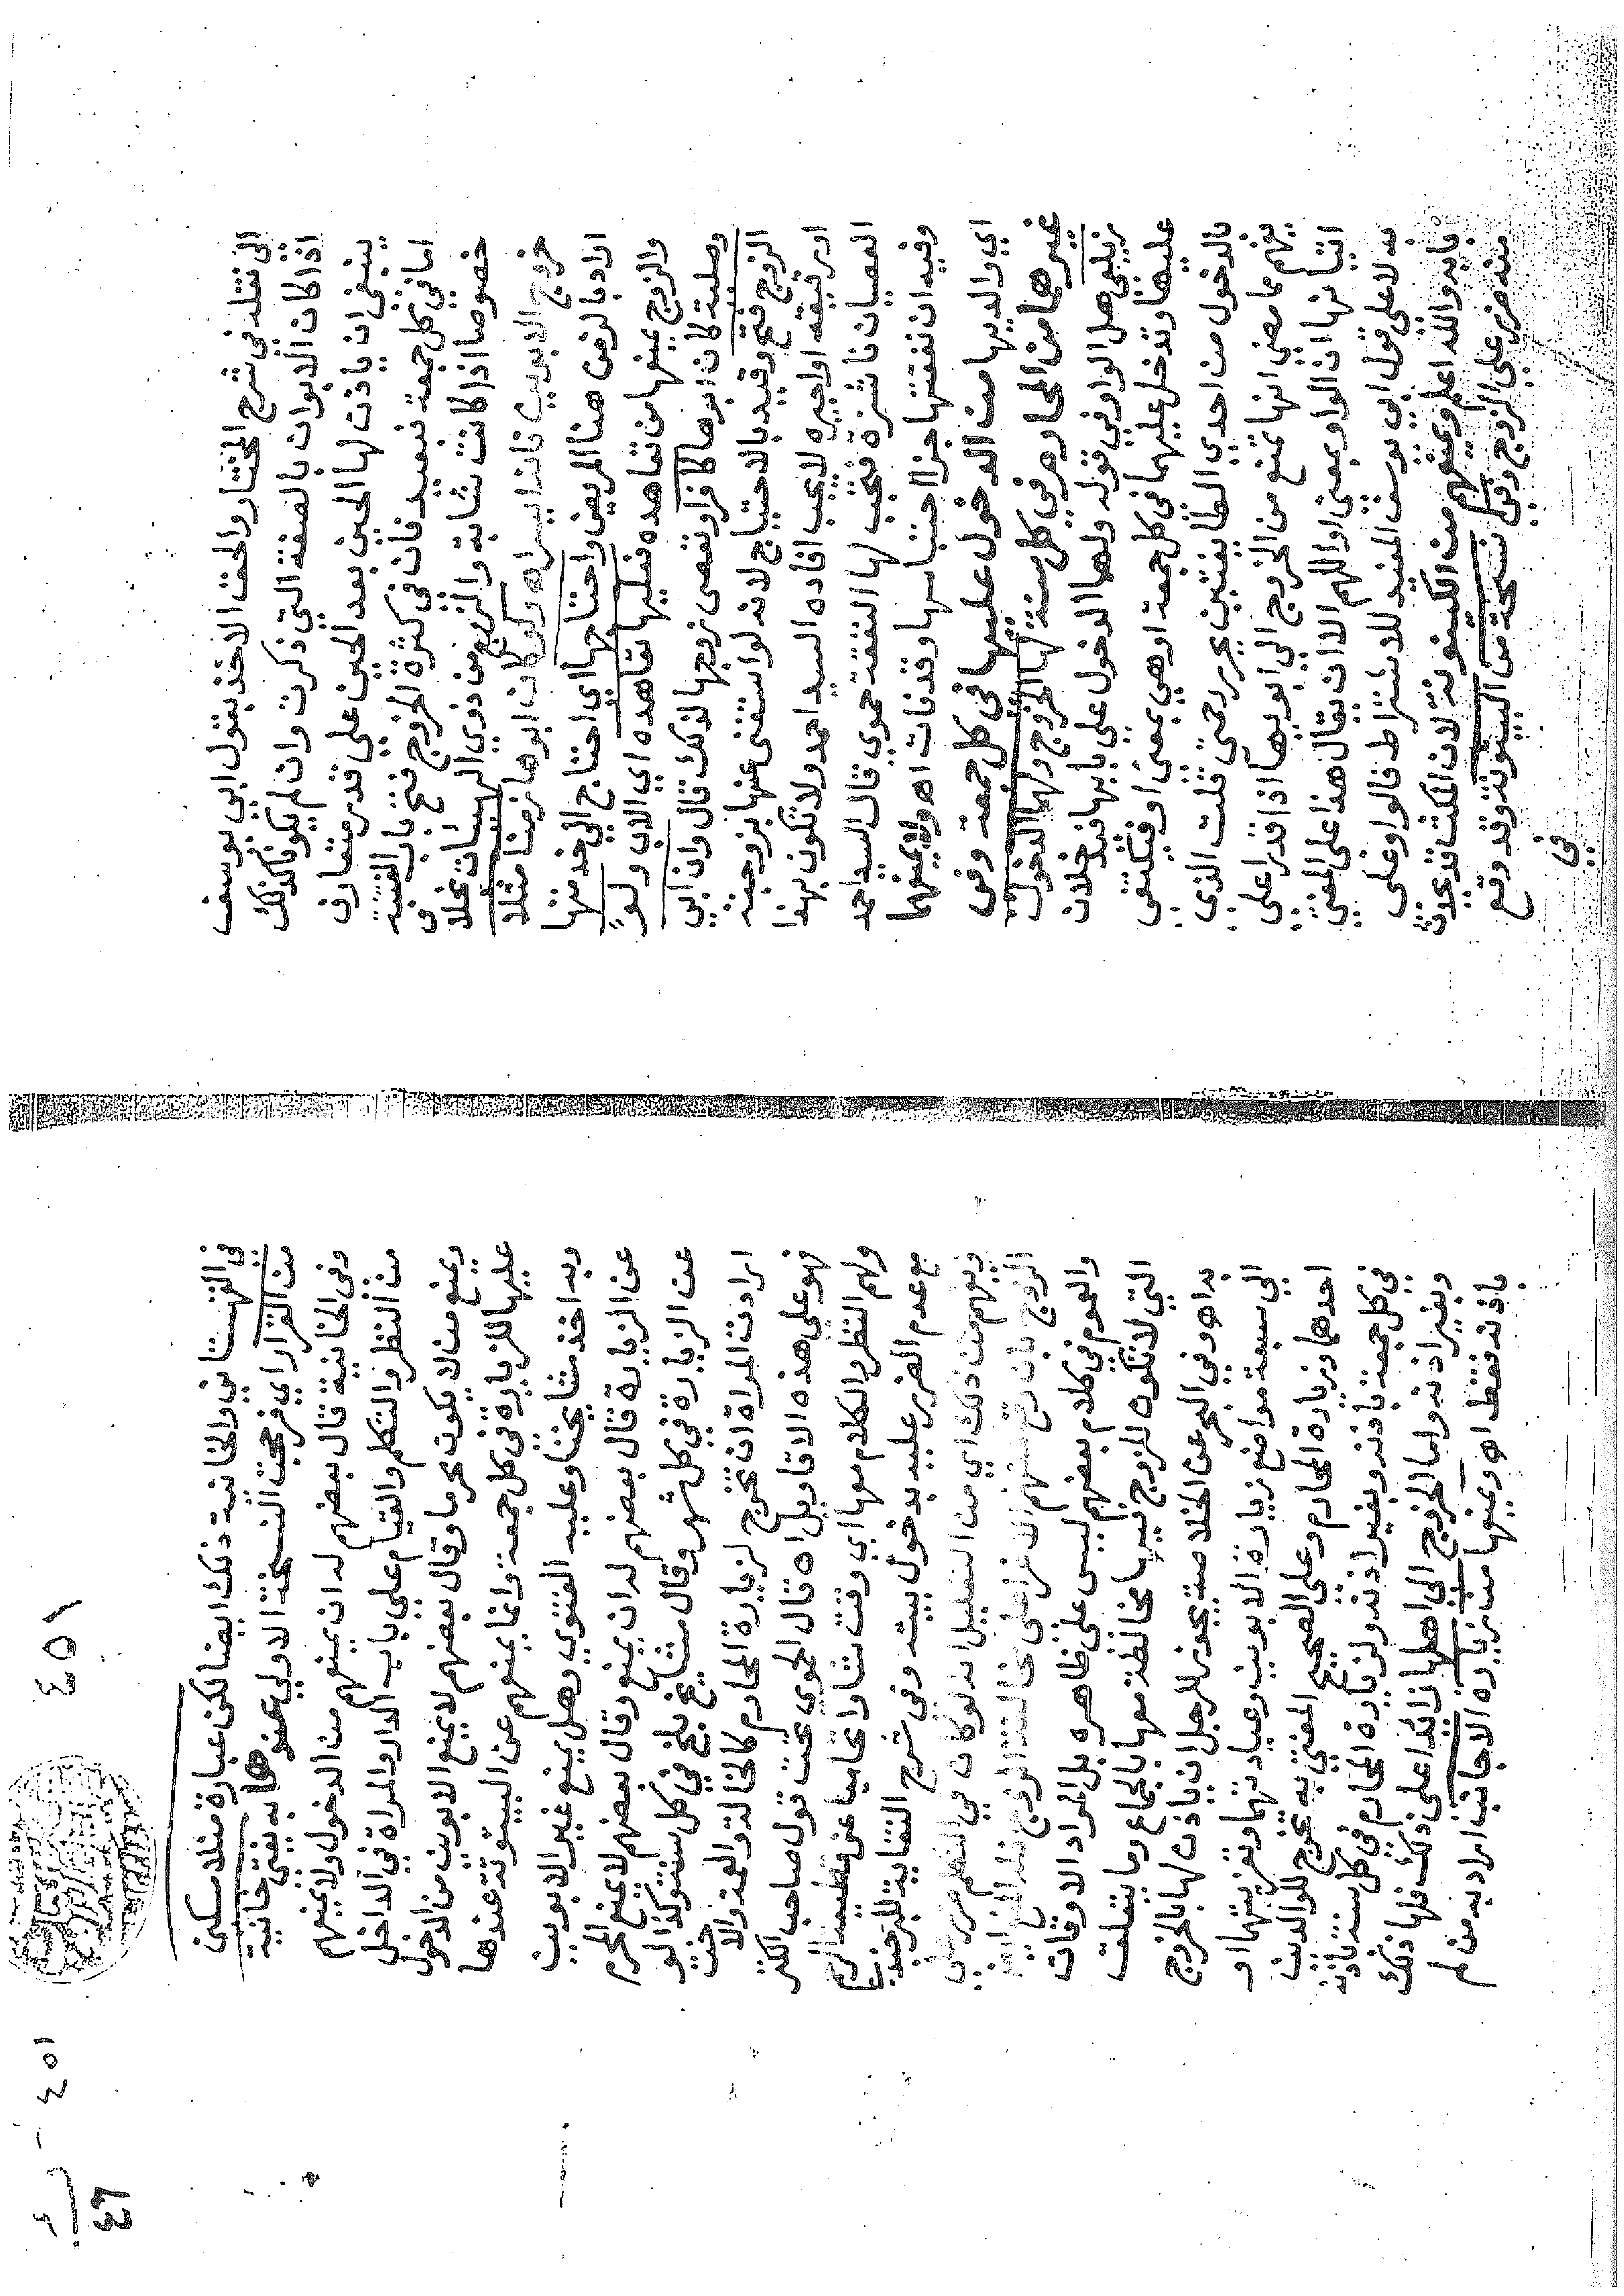 الى نقله في شرح المختار والحق الاخذ بقول ابي يوسف
اذا كان الابوان بالصفة التي ذكرت وان لم يكونا كذلك
ينبغي ان ياذن لها الحين بعد الحين على قدر متعارف
اما في كل جمعة فبعيد فان في كثرة الخروج فتح باب الفتنة
خصوصا اذا كانت شابة والزوج من ذوي الهيئات بخلاف
خروج الابوين فانه ايسر اه ولو كان ابوها زمنا مثلا
اراد بالزمن هنا المريض واحتاجها اي احتاج الى خدمتها
والزوج يمنعها من تعاهده فعليها تعاهده اي الاب ولو
وصلية كان ابوها كافرا وتعصى زوجها لذلك قال وان ابى
الزوج فتح وقيد بالاحتياج لانه لو استغنى عنها بزوجته
او رقيقه او اجيره لا يجب افاده السيد احمد ولا تكون بهذا
العصيان ناشزة فتجب لها النفقة حموي قال السيد احمد
وفيه ان نفقتها جزا احتباسها وقد فات اه ولا يمنعهما
اي والديها من الدخول عليها في كل جمعة وفي
غيرهما من المحارم في كل سنة لها الخروج ولهما الدخول
زيلعي هل الواو في قوله ولهما الدخول على بابها فيدخلان
عليها وتدخل عليهما في كل جمعة او هي بمعنى او فيكتفى
بالدخول من احدى الطائفتين يحرر رحمتي قلت الذي
يفهم مما مضى انها تمنع من الخروج الى ابويها اذا قدرا على
اتيانها ان الواو بمعنى او اللهم الا ان يقال هذا على المفتى
به لا على قول ابي يوسف المفيد للاشتراط قالوا وعلى
بابه والله اعلم ويمنعهم من الكينونة لان المكث قد يحدث
منه ضرر على الزوج وفي نسخة من البيتوتة وقد وقع
في
٤٥١
٤٥١
٤٦
في القهستاني والخانية ذلك ايضا لكن عبارة منلا مسكين
من القرار اي فرجحت النسخة الاولى عندها به يفتى خانية
وفي الخانية قال بعضهم له ان يمنعهم من الدخول ولا يمنعهم
من النظر والتكلم والقيام على باب الدار والمراة في الداخل
ويمنع من لا يكون محرما وقال بعضهم لا يمنع الابوين من الدخول
عليها للزيارة في كل جمعة وانما يمنعهم عن البيتوتة عندها
وبه اخذ مشايخنا وعليه الفتوى وهل يمنع غير الابوين
عن الزيارة قال بعضهم له ان يمنع وقال بعضهم لا يمنع المحرم
عن الزيارة في كل شهر وقال مشايخ بلخ في كل سنة وكذا لو
ارادت المراة ان تخرج لزيارة المحارم كالخالة والعمة والاخت
فهو على هذه الاقاويل اه قال الحموي تحت قول صاحب الكنز
ولهم النظر والكلام معها اي وقت شاؤا تحاميا عن قطيعة الرحم
مع عدم الضرر عليه بدخول بيته وفي شرح النقاية للبرجندي
ويفهم من ذلك اي من التعليل انه لو كان في التكلم ضرر على
الزوج بان تقع منهم الاغراء على مخالفة الزوج فله المنع ايضا
والعموم في كلام بعضهم ليس على ظاهره بل المراد الاوقات
التي لا تكون للزوج فيها مخالطة معها بالجماع وما يتعلق
به اه وفي البحر عن الخلاصة يجوز للرجل ان ياذن لها بالخروج
الى سبعة مواضع زيارة الابوين وعيادتهما وتعزيتهما او
احدهما وزيارة المحارم وعلى الصحيح المفتى به تخرج للوالدين
في كل جمعة باذنه وبغير اذنه ولزيارة المحارم في كل سنة باذنه
وبغير اذنه واما الخروج الى اهلها زائدا على ذلك فلها ذلك
باذنه فقط اه ويمنعها من زيارة الاجانب اراد به من لم